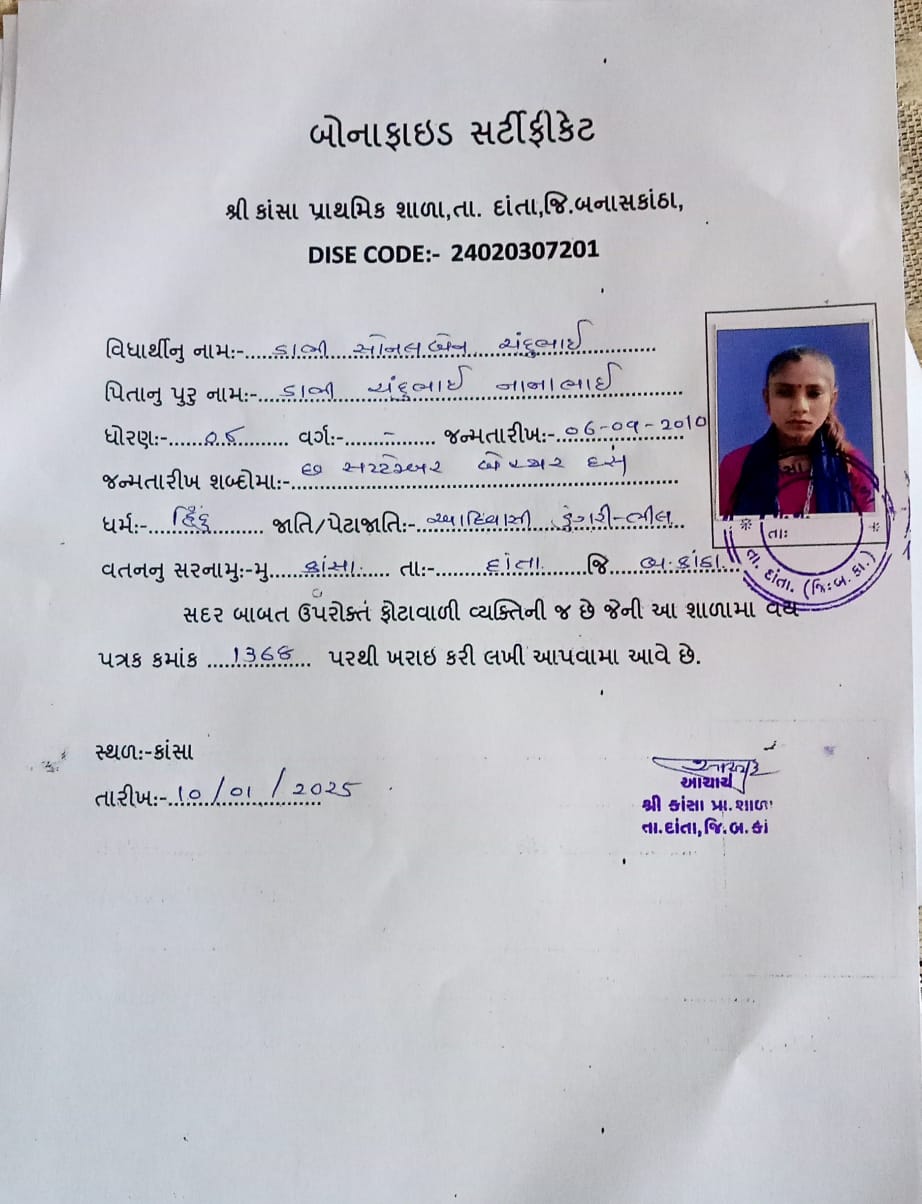 બોનાફાઇડ સર્ટીફીકેટ
શ્રી કાંસા પ્રાથમિક શાળા,તા. દાંતા,જિ.બનાસકાંઠા,
DISE CODE:- 24020307201
વિધાર્થીનુ નામ:-....ડાભી સોનલબેન ચંદુભાઈ
પિતાનુ પુરુ નામ:-...ડાભી ચંદુભાઈ નાનાભાઈ
ધોરણ:-...... વર્ગ:-.....-...... જન્મતારીખ:-.06-09-2010
જન્મતારીખ શબ્દોમા:-છ સપ્ટેમ્બર બે હજાર દસ
ધર્મ:-...હિંદુ...... જાતિ/પેટાજાતિ:-.આદિવાસી ડુંગરી-ભીલ..
વતનનુ સરનામુ:-મુ....કાંસા..... તા:-.......દાંતા......જિ....બ.કાંઠા...
સદર બાબત ઉપરોક્ત ફોટાવાળી વ્યક્તિની જ છે જેની આ શાળામા વય
પત્રક ક્માંક ....1368... પરથી ખરાઇ કરી લખી આપવામા આવે છે.
તા:
તા. દાંતા. (જિ:બ. કા.)
સ્થળ:-કાંસા
તારીખ:-10/01/2025
આચાર્ય
શ્રી કાંસા પ્રા.શાળા
તા.દાંતા,જિ.બ.કાં